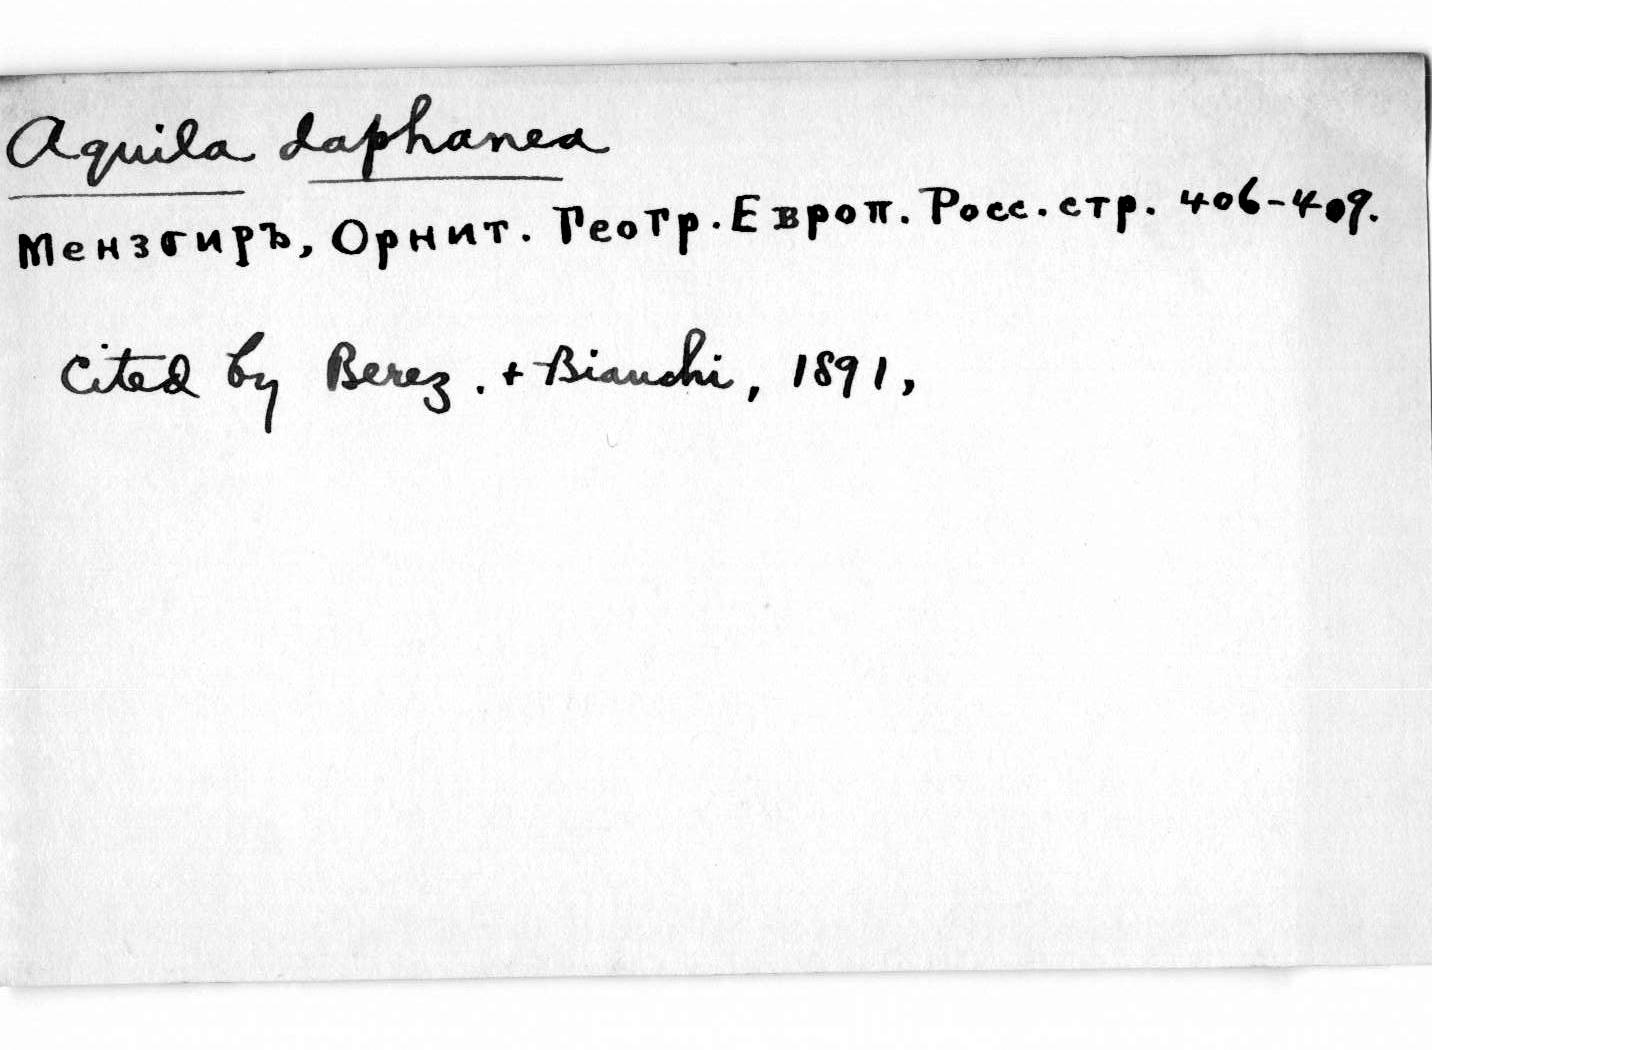 Aquila daphanea
Мензбиръ, Орнит. Геогр. Европ. Росс. стр. 406-409.
Cited by Berez. + Bianchi, 1891,